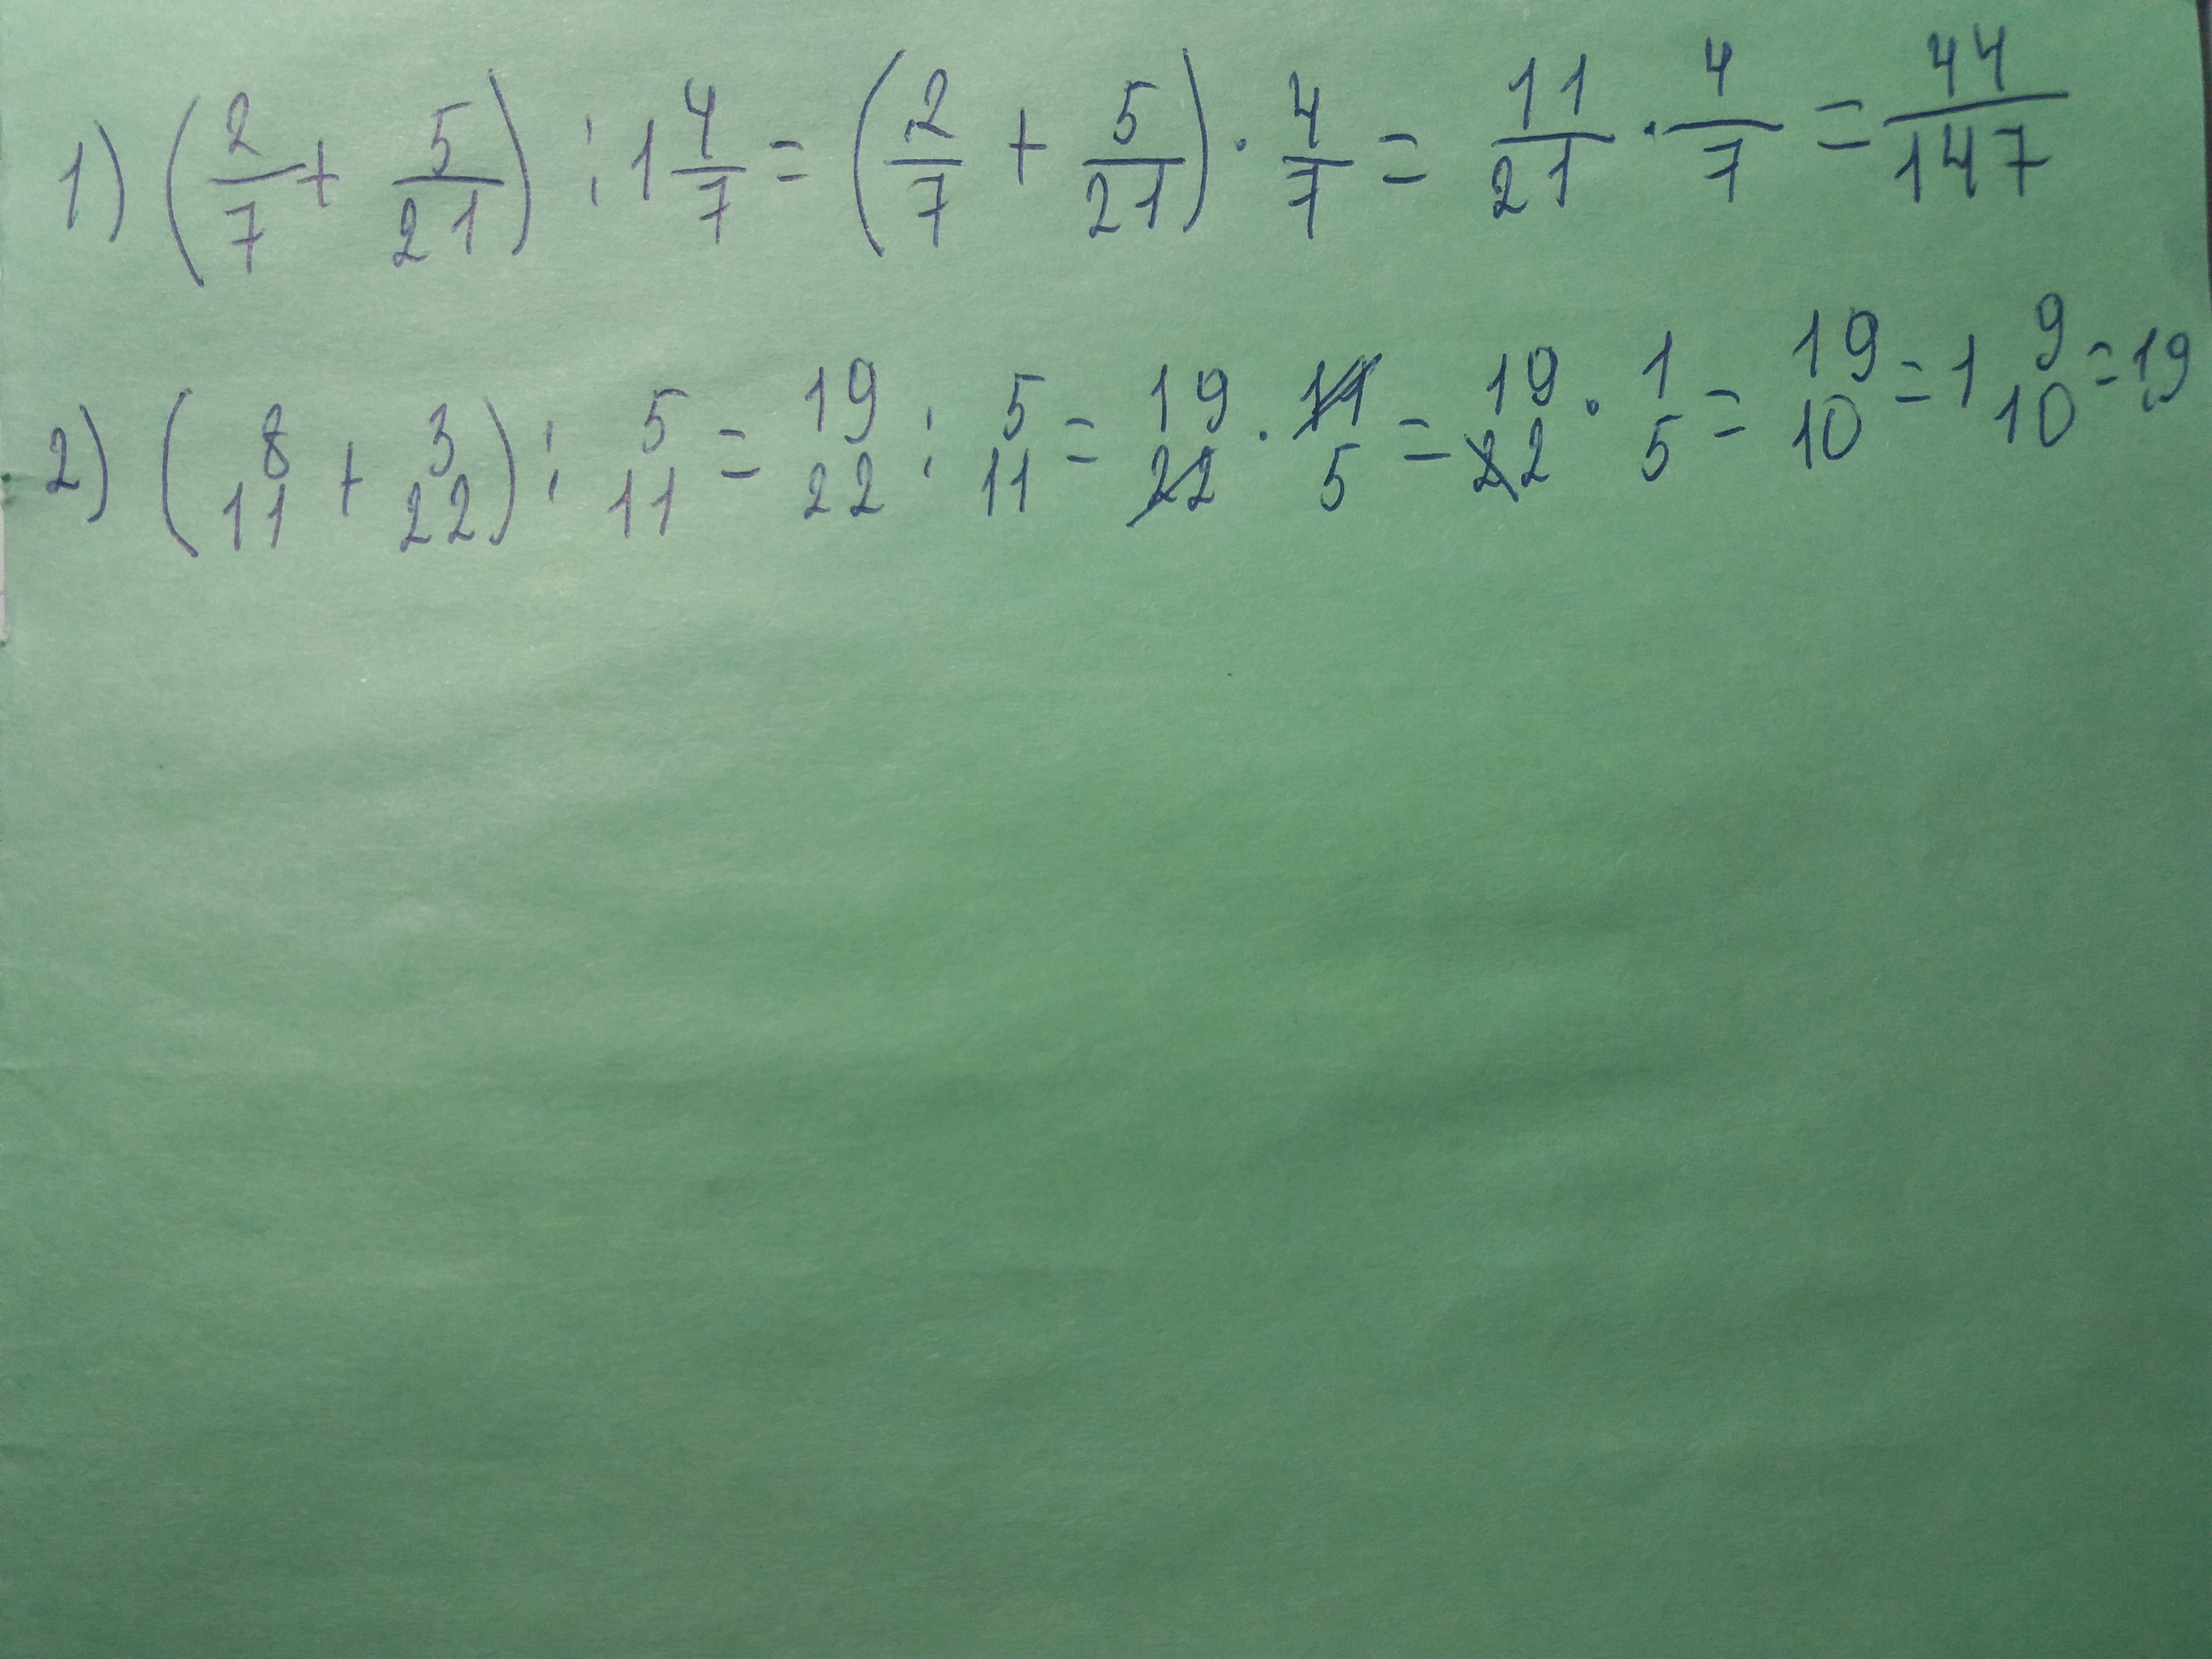 1) (2/7 + 5/21) : 1 4/7 = (2/7 + 5/21) · 4/7 = 11/21 · 4/7 = 44/147
2) (8/11 + 3/22) : 5/11 = 19/22 : 5/11 = 19/22 · 11/5 = 19/22 · 1/5 = 19/10 = 1 9/10 = 1,9